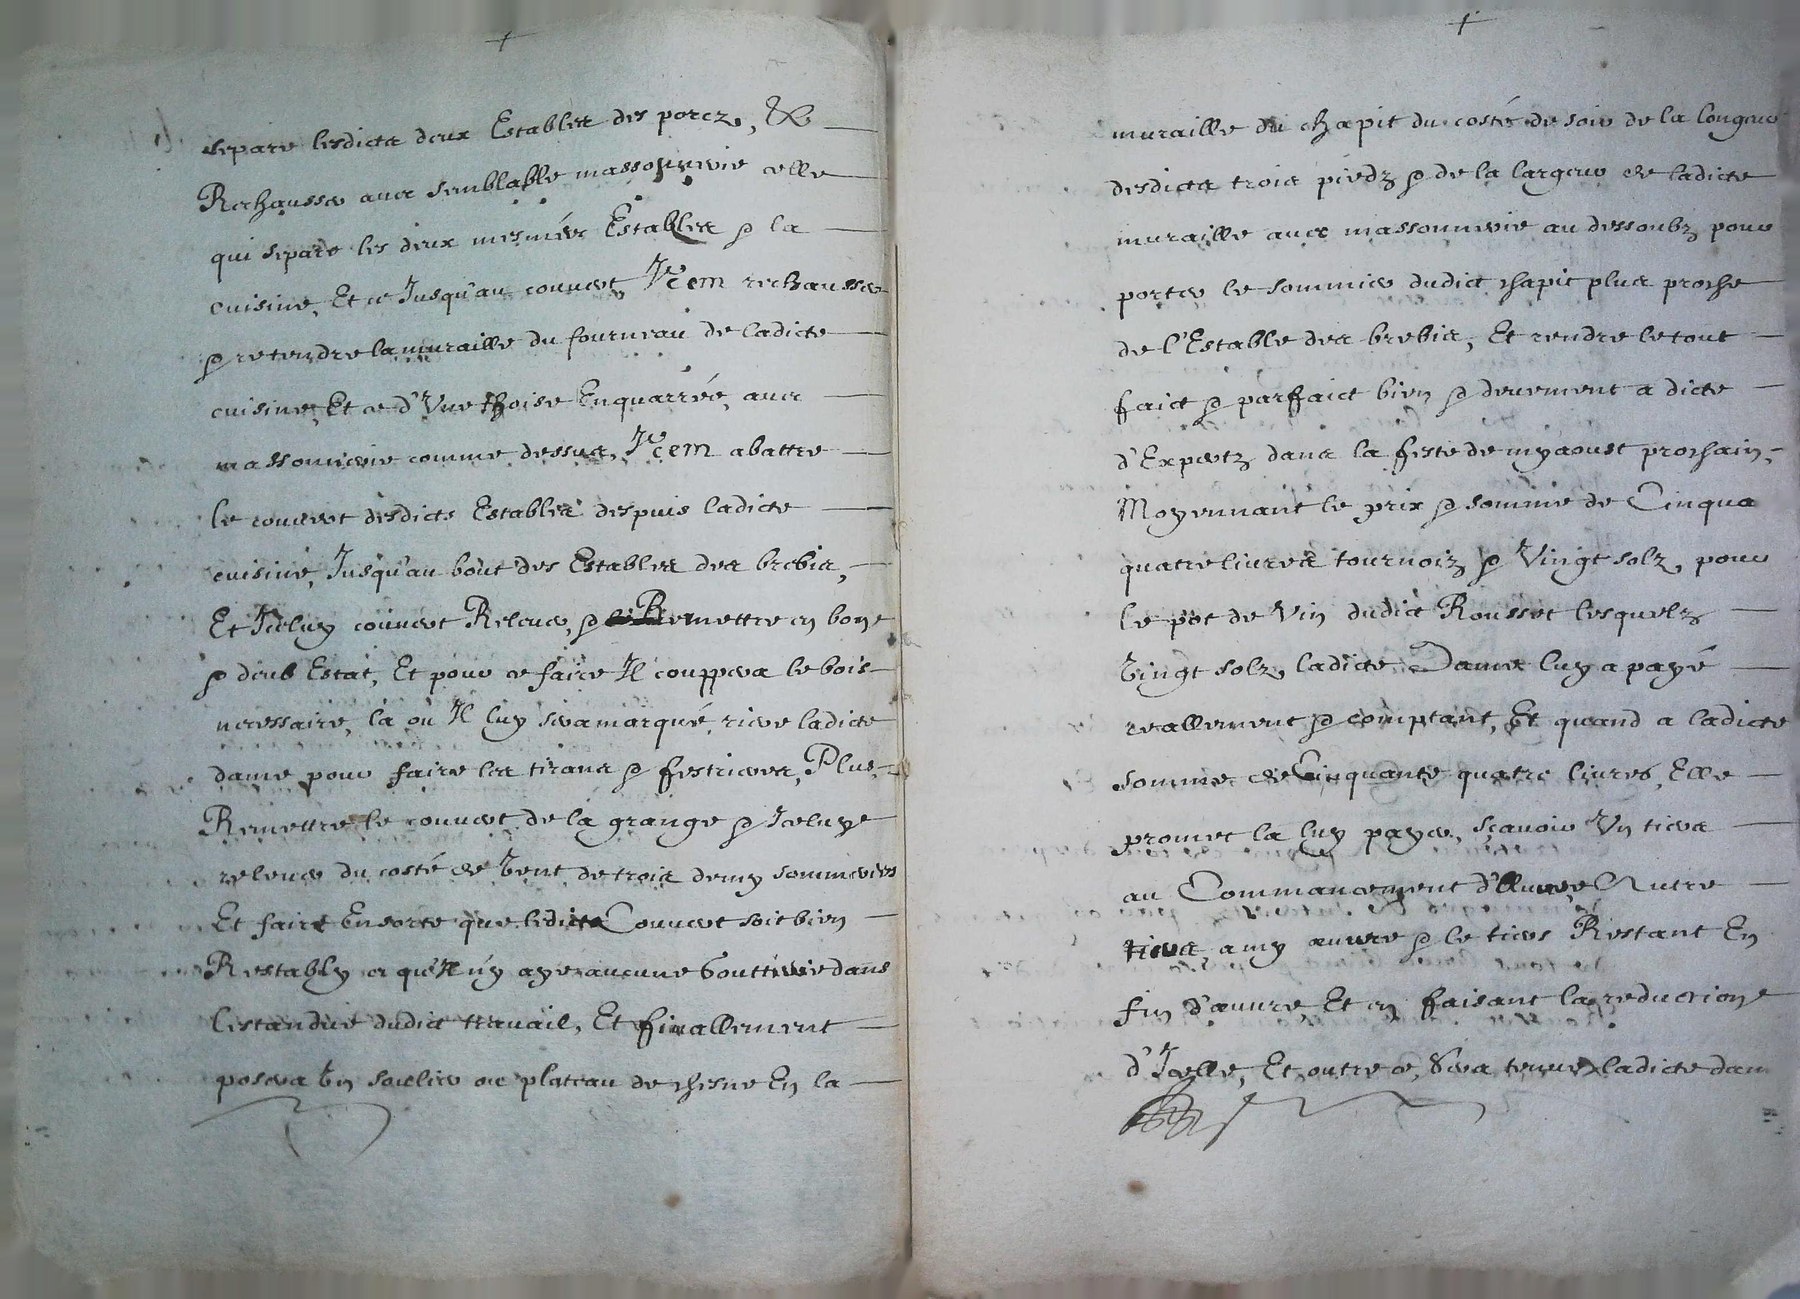 separe lesdicts deux Estables des porcz, &
Rechausser avec semblable massonnerie celle
qui separe les deux mesmes Estables & la
cuisine, Et ce Jusqu'au couvert, Item rechausser
& retendre la muraille du fourneau de ladicte
cuisine, Et ce d'Une thoise Enquarrée, avec
massonnerie comme dessus, Item abattre
le couvert desdicts Estables despuis ladicte
cuisine, Jusqu'au bout des Estables des brebis,
Et Iceluy couvert Relever, & Remettre en bon
& deub Estat, Et pour ce faire Il couppera le bois
necessaire, la où Il luy sera marqué, riere ladicte
dame pour faire les tirans & festrieres, Plus
Remettre le couvert de la grange & Iceluy
relever du costé de Vent de trois demy sommiers
Et faire Ensorte que ledict Couvert soit bien
Restably et qu'Il n'y aye aucune Gouttiere dans
l'estandue dudict travail, Et finallement
posera Un soulier ou plateau de chesne En la
muraille du chapit du costé de soir de la longeur
desdicts trois piedz & de la largeur de ladicte
muraille avec massonnerie au dessoubz pour
porter le sommier dudict chapit plus proche
de l'Estable des brebis, Et rendre le tout
faict & parffaict bien & deuement a dicte
d'Expertz dans la feste de my aoust prochain,
Moyennant le prix & somme de Cinqua
quatre livres tournoiz & Vingt solz, pour
le pot de Vin dudict Rousset lesquelz
Vingt solz, ladicte Dame luy a payé
reallement & comptant, Et quand a ladicte
somme de Cinquante quatre livres, Elle
promet la luy payer, sçavoir Un tiers
au Commancement d'Euvre, Autre
tiers a my auvre & le tiers Restant En
fin d'auvre, Et en faisant la reduction
d'Icelle, Et outre ce, Sera tenue ladicte dam